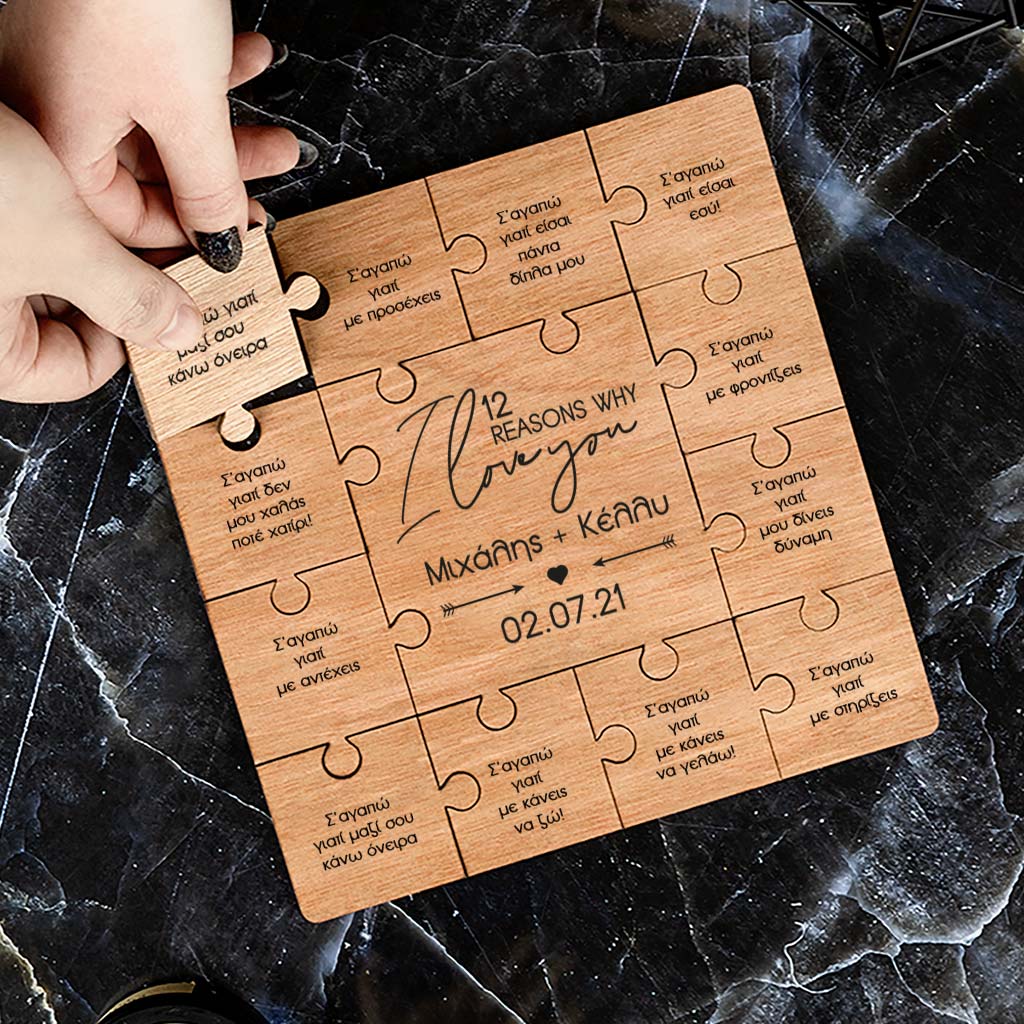 γιατί
μαζί σου
κάνω όνειρα
Σ'αγαπώ
γιατί
με προσέχεις
Σ'αγαπώ
γιατί είσαι
πάντα
δίπλα μου
Σ'αγαπώ
γιατί είσαι
εσύ!
Σ'αγαπώ
γιατί δεν
μου χαλάς
ποτέ χατίρι!
12
REASONS WHY
I love you
Μιχάλης + Κέλλυ
02.07.21
Σ'αγαπώ
γιατί
με φροντίζεις
Σ'αγαπώ
γιατί
με αντέχεις
Σ'αγαπώ
γιατί
μου δίνεις
δύναμη
Σ'αγαπώ
γιατί μαζί σου
κάνω όνειρα
Σ'αγαπώ
γιατί
με κάνεις
να ζώ!
Σ'αγαπώ
γιατί
με κάνεις
να γελάω!
Σ'αγαπώ
γιατί
με στηρίζεις